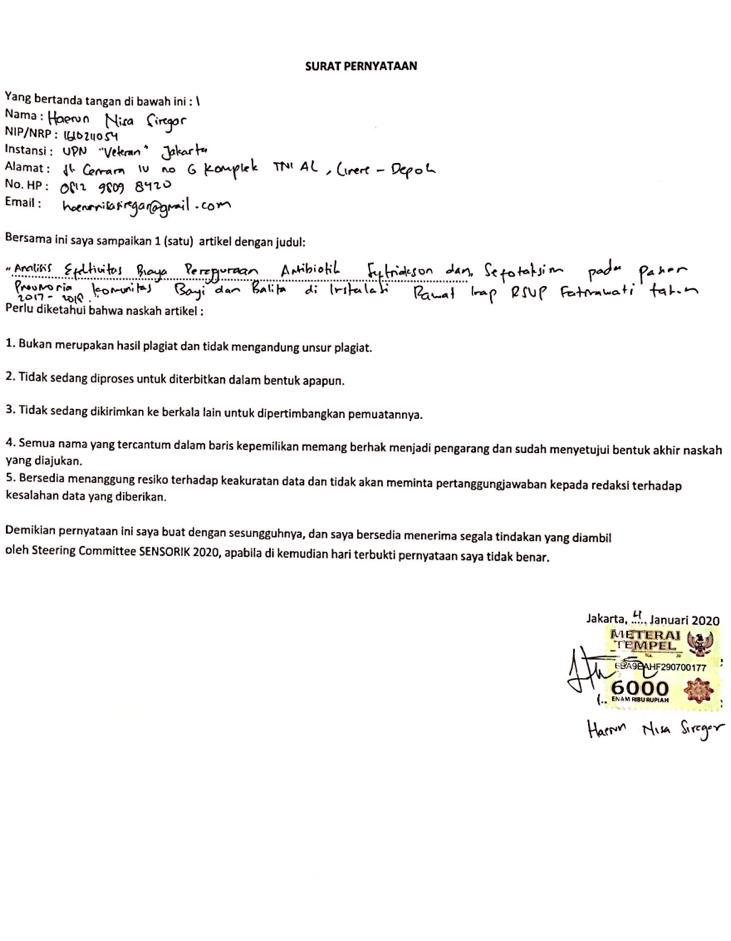 SURAT PERNYATAAN
Yang bertanda tangan di bawah ini : \
Nama : Haerun Nisa Siregar
NIP/NRP : 1610211054
Instansi : UPN "Veteran" Jakarta
Alamat : Jl Cemara IV no 6 Komplek TNI AL, Cinere - Depok
No. HP : 0812 9809 8420
Email : haerunnisasiregar@gmail.com
Bersama ini saya sampaikan 1 (satu) artikel dengan judul:
"Analisis Efektivitas Biaya Penggunaan Antibiotik Seftriakson dan Sefotaksim pada Pasien
Pneumonia Komunitas Bayi dan Balita di Instalasi Rawat Inap RSUP Fatmawati tahun
2017 - 2018.
Perlu diketahui bahwa naskah artikel :
1. Bukan merupakan hasil plagiat dan tidak mengandung unsur plagiat.
2. Tidak sedang diproses untuk diterbitkan dalam bentuk apapun.
3. Tidak sedang dikirimkan ke berkala lain untuk dipertimbangkan pemuatannya.
4. Semua nama yang tercantum dalam baris kepemilikan memang berhak menjadi pengarang dan sudah menyetujui bentuk akhir naskah
yang diajukan.
5. Bersedia menanggung resiko terhadap keakuratan data dan tidak akan meminta pertanggungjawaban kepada redaksi terhadap
kesalahan data yang diberikan.
Demikian pernyataan ini saya buat dengan sesungguhnya, dan saya bersedia menerima segala tindakan yang diambil
oleh Steering Committee SENSORIK 2020, apabila di kemudian hari terbukti pernyataan saya tidak benar.
Jakarta, 4 Januari 2020
METERAI
TEMPEL
6000
ENAM RIBU RUPIAH
Haerun Nisa Siregar